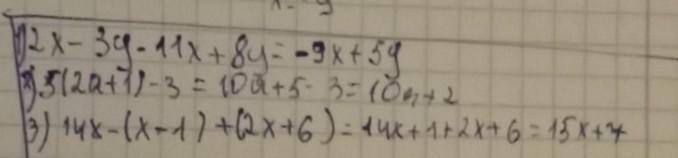 1) 2x - 3y - 11x + 8y = -9x + 5y
2) 5(2a+1) - 3 = 10a + 5 - 3 = 10a + 2
3) 14x - (x - 1) + (2x + 6) = 14x + 1 + 2x + 6 = 15x + 7